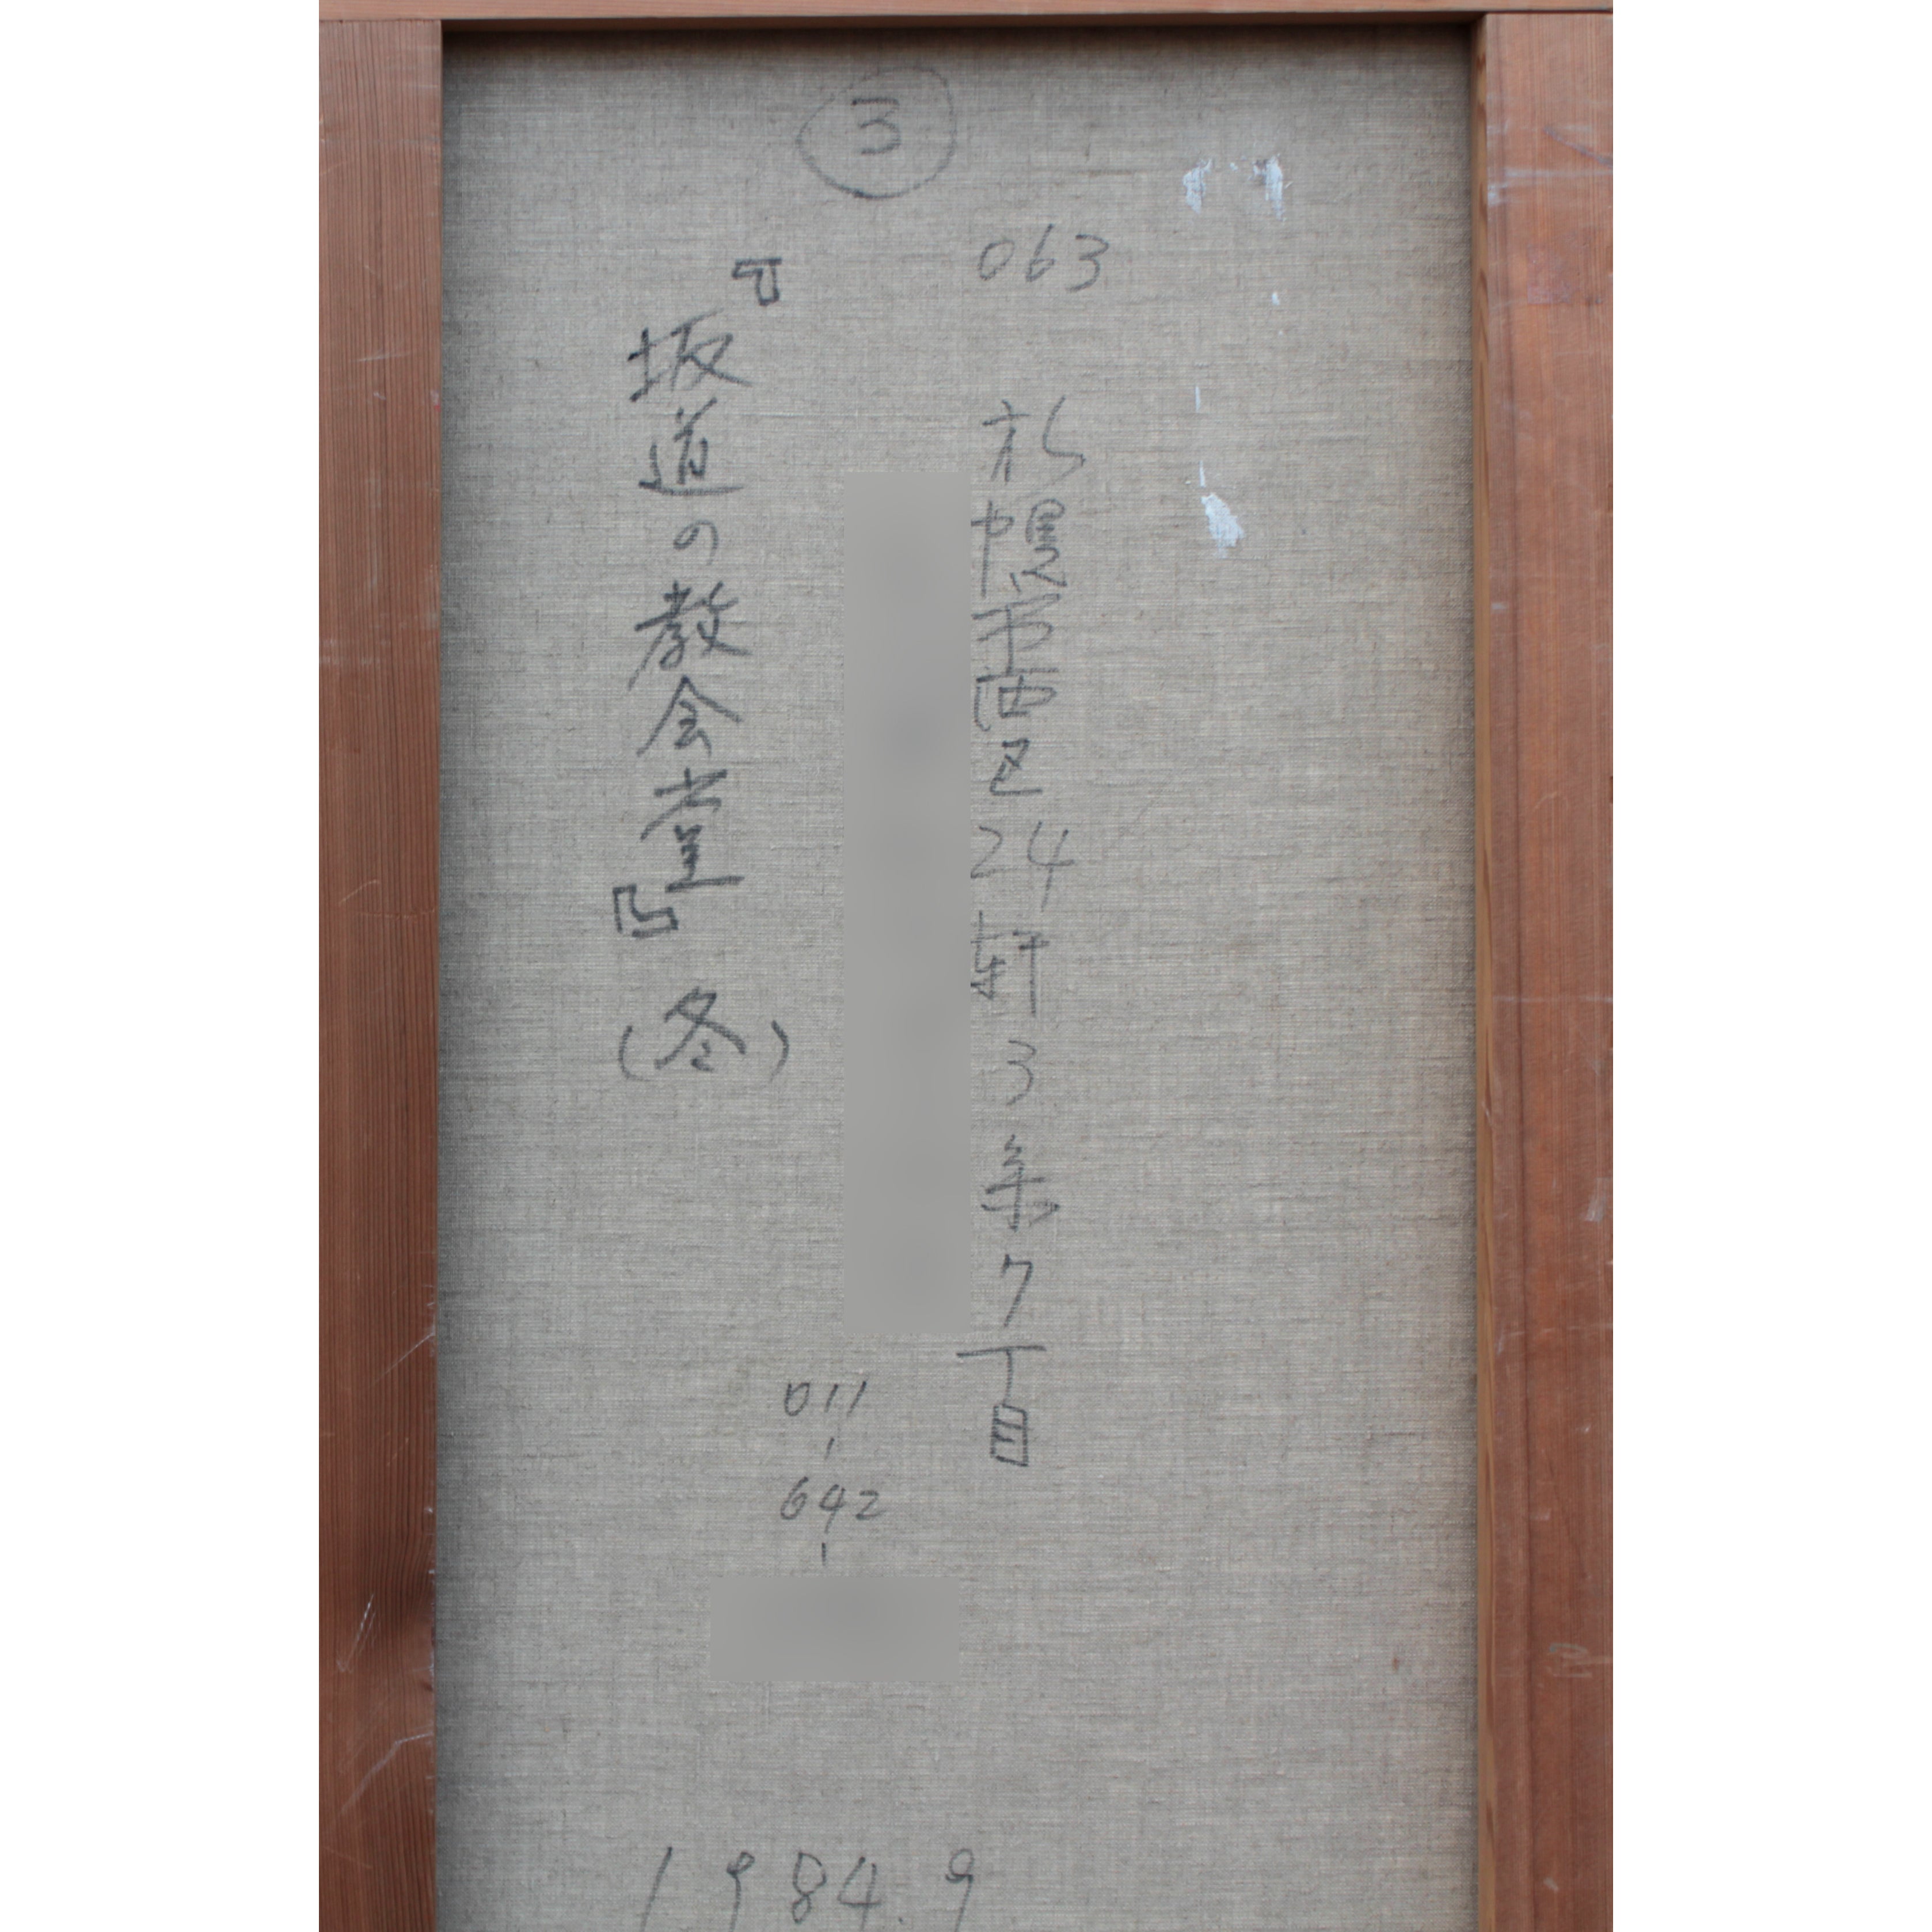 ③
063
札幌市西区24軒3条7丁目
011-642-
『坂道の教会堂』(冬)
1984.9